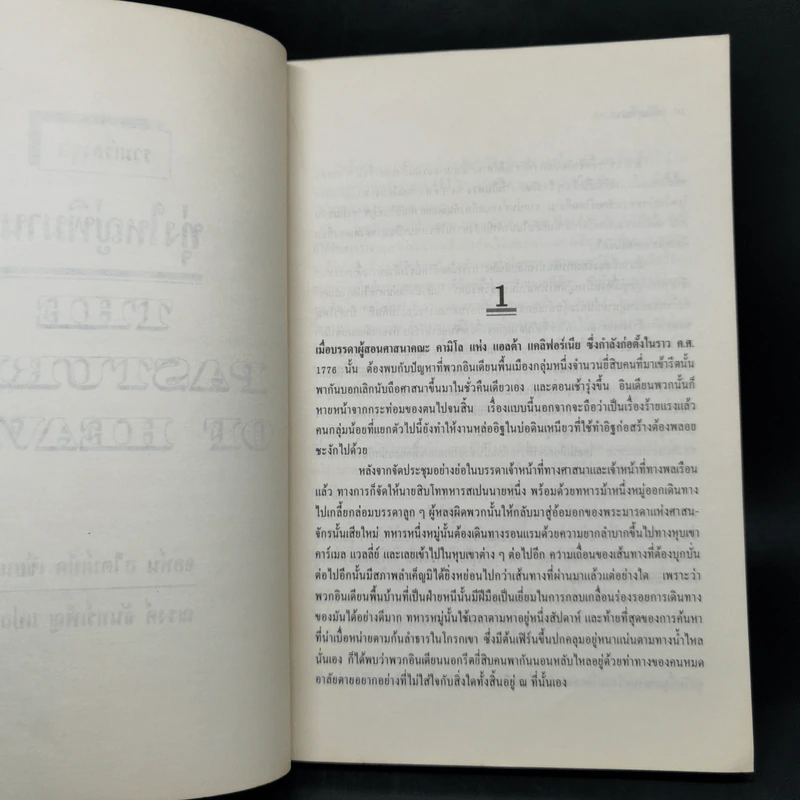 1
เมื่อบรรดาผู้สอนศาสนาคณะ คามิโล แห่ง แอลต้า แคลิฟอร์เนีย ซึ่งกำลังก่อตั้งในราว ค.ศ.
1776 นั้น ต้องพบกับปัญหาที่พวกอินเดียนพื้นเมืองกลุ่มหนึ่งจำนวนยี่สิบคนที่มาเข้ารีตนั้น
พากันบอกเลิกนับถือศาสนาขึ้นมาในชั่วคืนเดียวเอง และตอนเช้ารุ่งขึ้น อินเดียนพวกนั้นก็
หายหน้าจากกระท่อมของตนไปจนสิ้น เรื่องแบบนี้นอกจากจะถือว่าเป็นเรื่องร้ายแรงแล้ว
คนกลุ่มน้อยที่แยกตัวไปนี้ยังทำให้งานหล่ออิฐในบ่อดินเหนียวที่ใช้ทำอิฐก่อสร้างต้องพลอย
ชะงักไปด้วย
หลังจากจัดประชุมอย่างย่อในบรรดาเจ้าหน้าที่ทางศาสนาและเจ้าหน้าที่ทางพลเรือน
แล้ว ทางการก็จัดให้นายสิบโททหารสเปนนายหนึ่ง พร้อมด้วยทหารม้าหนึ่งหมู่ออกเดินทาง
ไปเกลี้ยกล่อมบรรดาลูก ๆ ผู้หลงผิดพวกนั้นให้กลับมาสู่อ้อมอกของพระมารดาแห่งศาสน-
จักรนั้นเสียใหม่ ทหารหนึ่งหมู่นั้นต้องเดินทางรอนแรมด้วยความยากลำบากขึ้นไปทางหุบเขา
คาร์เมล แวลลี่ย์ และเลยเข้าไปในหุบเขาต่าง ๆ ต่อไปอีก ความเถื่อนของเส้นทางที่ต้องบุกบั่น
ต่อไปอีกนั้นมีสภาพลำเค็ญมิได้ยิ่งหย่อนไปกว่าเส้นทางที่ผ่านมาแล้วแต่อย่างใด เพราะว่า
พวกอินเดียนพื้นบ้านที่เป็นฝ่ายหนีนั้นมีฝีมือเป็นเยี่ยมในการลบเกลื่อนร่องรอยการเดินทาง
ของมันได้อย่างดีมาก ทหารหมู่นั้นใช้เวลาตามหาอยู่หนึ่งสัปดาห์ และท้ายที่สุดของการค้นหา
ที่น่าเบื่อหน่ายตามก้นลำธารในโกรกเขา ซึ่งมีต้นเฟิร์นขึ้นปกคลุมอยู่หนาแน่นตามทางน้ำไหล
นั่นเอง ก็ได้พบว่าพวกอินเดียนนอกรีตยี่สิบคนพากันนอนหลับไหลอยู่ด้วยท่าทางของคนหมด
อาลัยตายอยากอย่างที่ไม่ใส่ใจกับสิ่งใดทั้งสิ้นอยู่ ณ ที่นั้นเอง